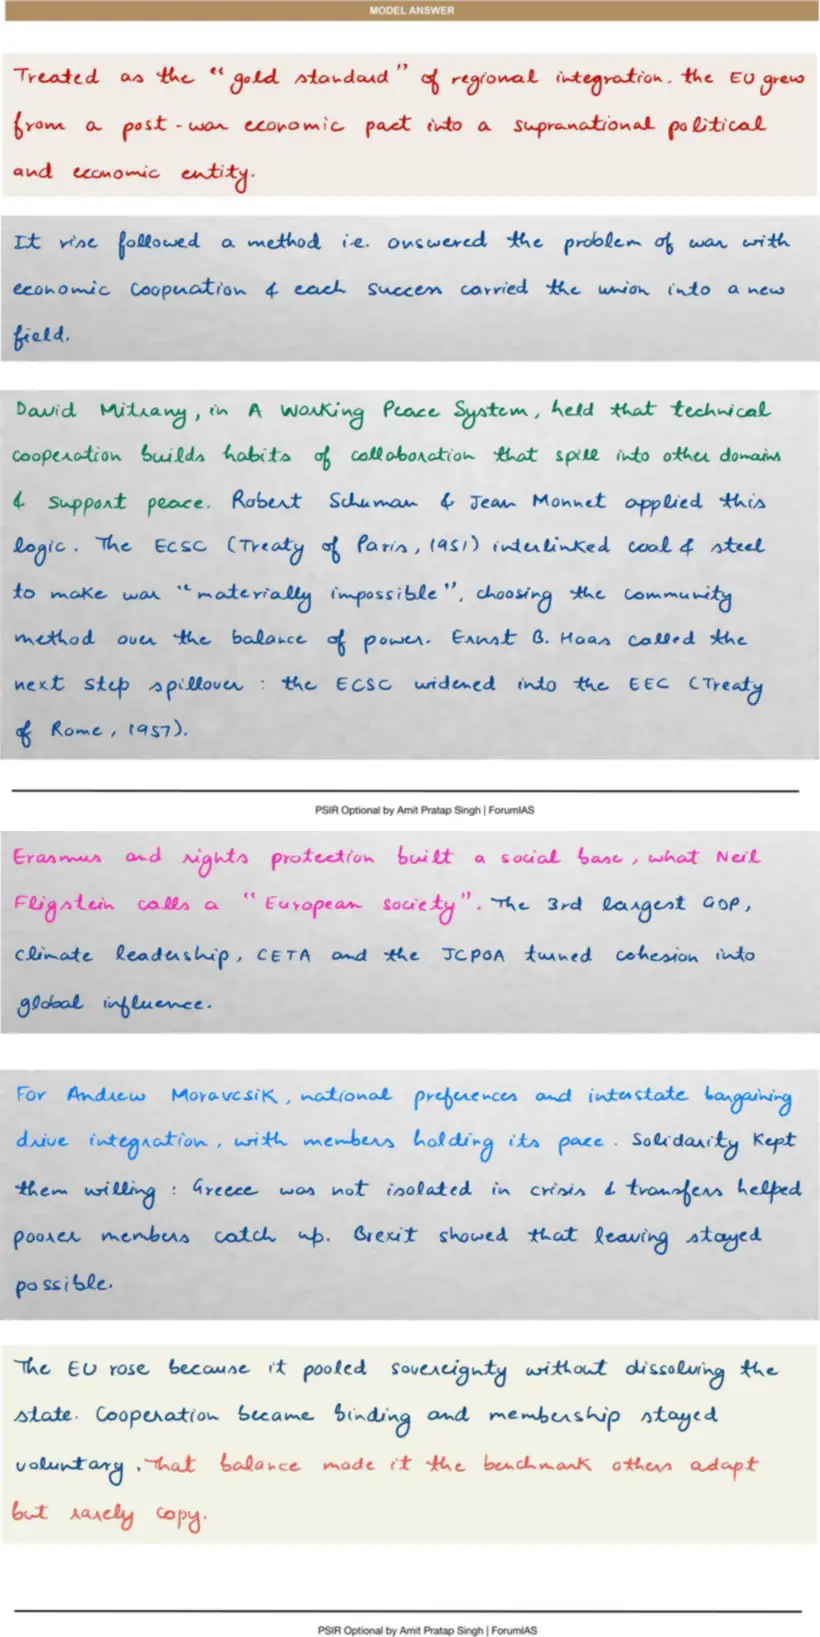 MODEL ANSWER
Treated as the "gold standard" of regional integration. the EU grew
from a post-war economic pact into a supranational political
and economic entity.
It rise followed a method i.e. answered the problem of war with
economic cooperation & each success carried the union into a new
field.
David Mitrany, in A Working Peace System, held that technical
cooperation builds habits of collaboration that spill into other domains
& support peace. Robert Schuman & Jean Monnet applied this
logic. The ECSC (Treaty of Paris, 1951) interlinked coal & steel
to make war "materially impossible", choosing the community
method over the balance of power. Ernst B. Haas called the
next step spillover : the ECSC widened into the EEC (Treaty
of Rome, 1957).
PSIR Optional by Amit Pratap Singh | ForumIAS
Erasmus and rights protection built a social base, what Neil
Fligstein calls a "European society". The 3rd largest GDP,
climate leadership, CETA and the JCPOA turned cohesion into
global influence.
For Andrew Moravcsik, national preferences and interstate bargaining
drive integration, with members holding its pace. Solidarity kept
them willing : Greece was not isolated in crisis & transfers helped
poorer members catch up. Brexit showed that leaving stayed
possible.
The EU rose because it pooled sovereignty without dissolving the
state. Cooperation became binding and membership stayed
voluntary. That balance made it the benchmark others adapt
but rarely copy.
PSIR Optional by Amit Pratap Singh | ForumIAS